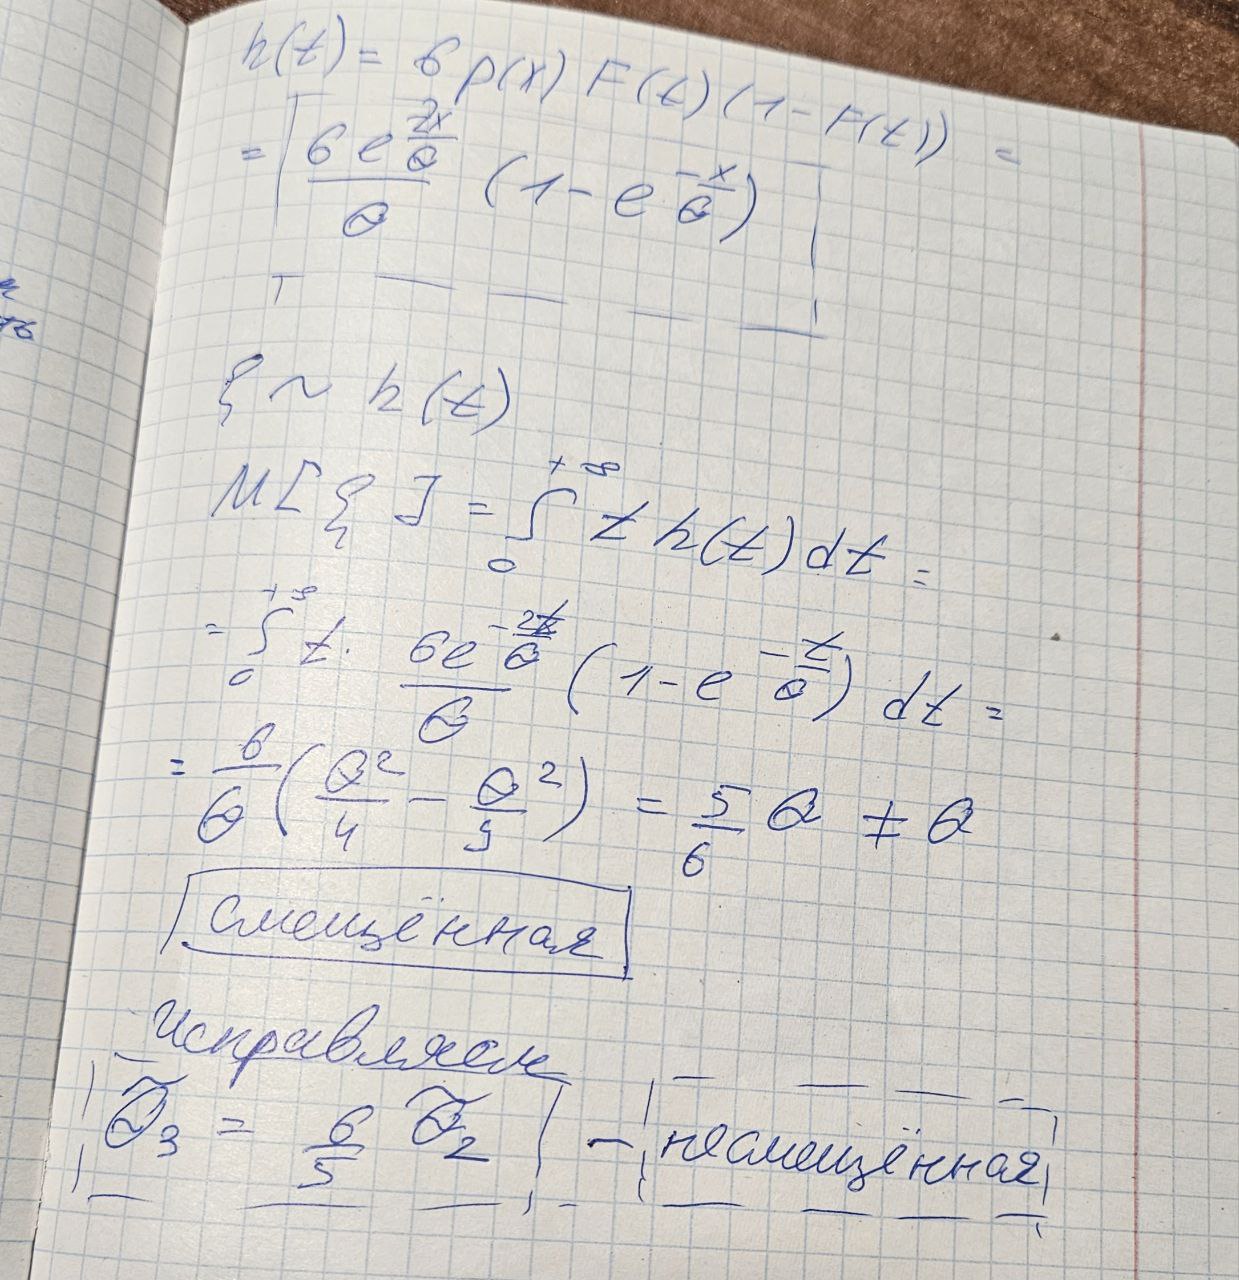 h(t) = 6 p(x) F(t) (1 - F(t)) =
= 6e^{2x/θ}/θ (1 - e^{-x/θ})
ξ ~ h(t)
M[ξ] = ∫_0^{+∞} t h(t) dt =
= ∫_0^{+∞} t · 6e^{-2t/θ}/θ (1 - e^{-t/θ}) dt =
= 6/θ (θ²/4 - θ²/9) = 5/6 θ ≠ θ
смещённая
исправляем
θ̃₃ = 6/5 θ̃₂ - несмещённая